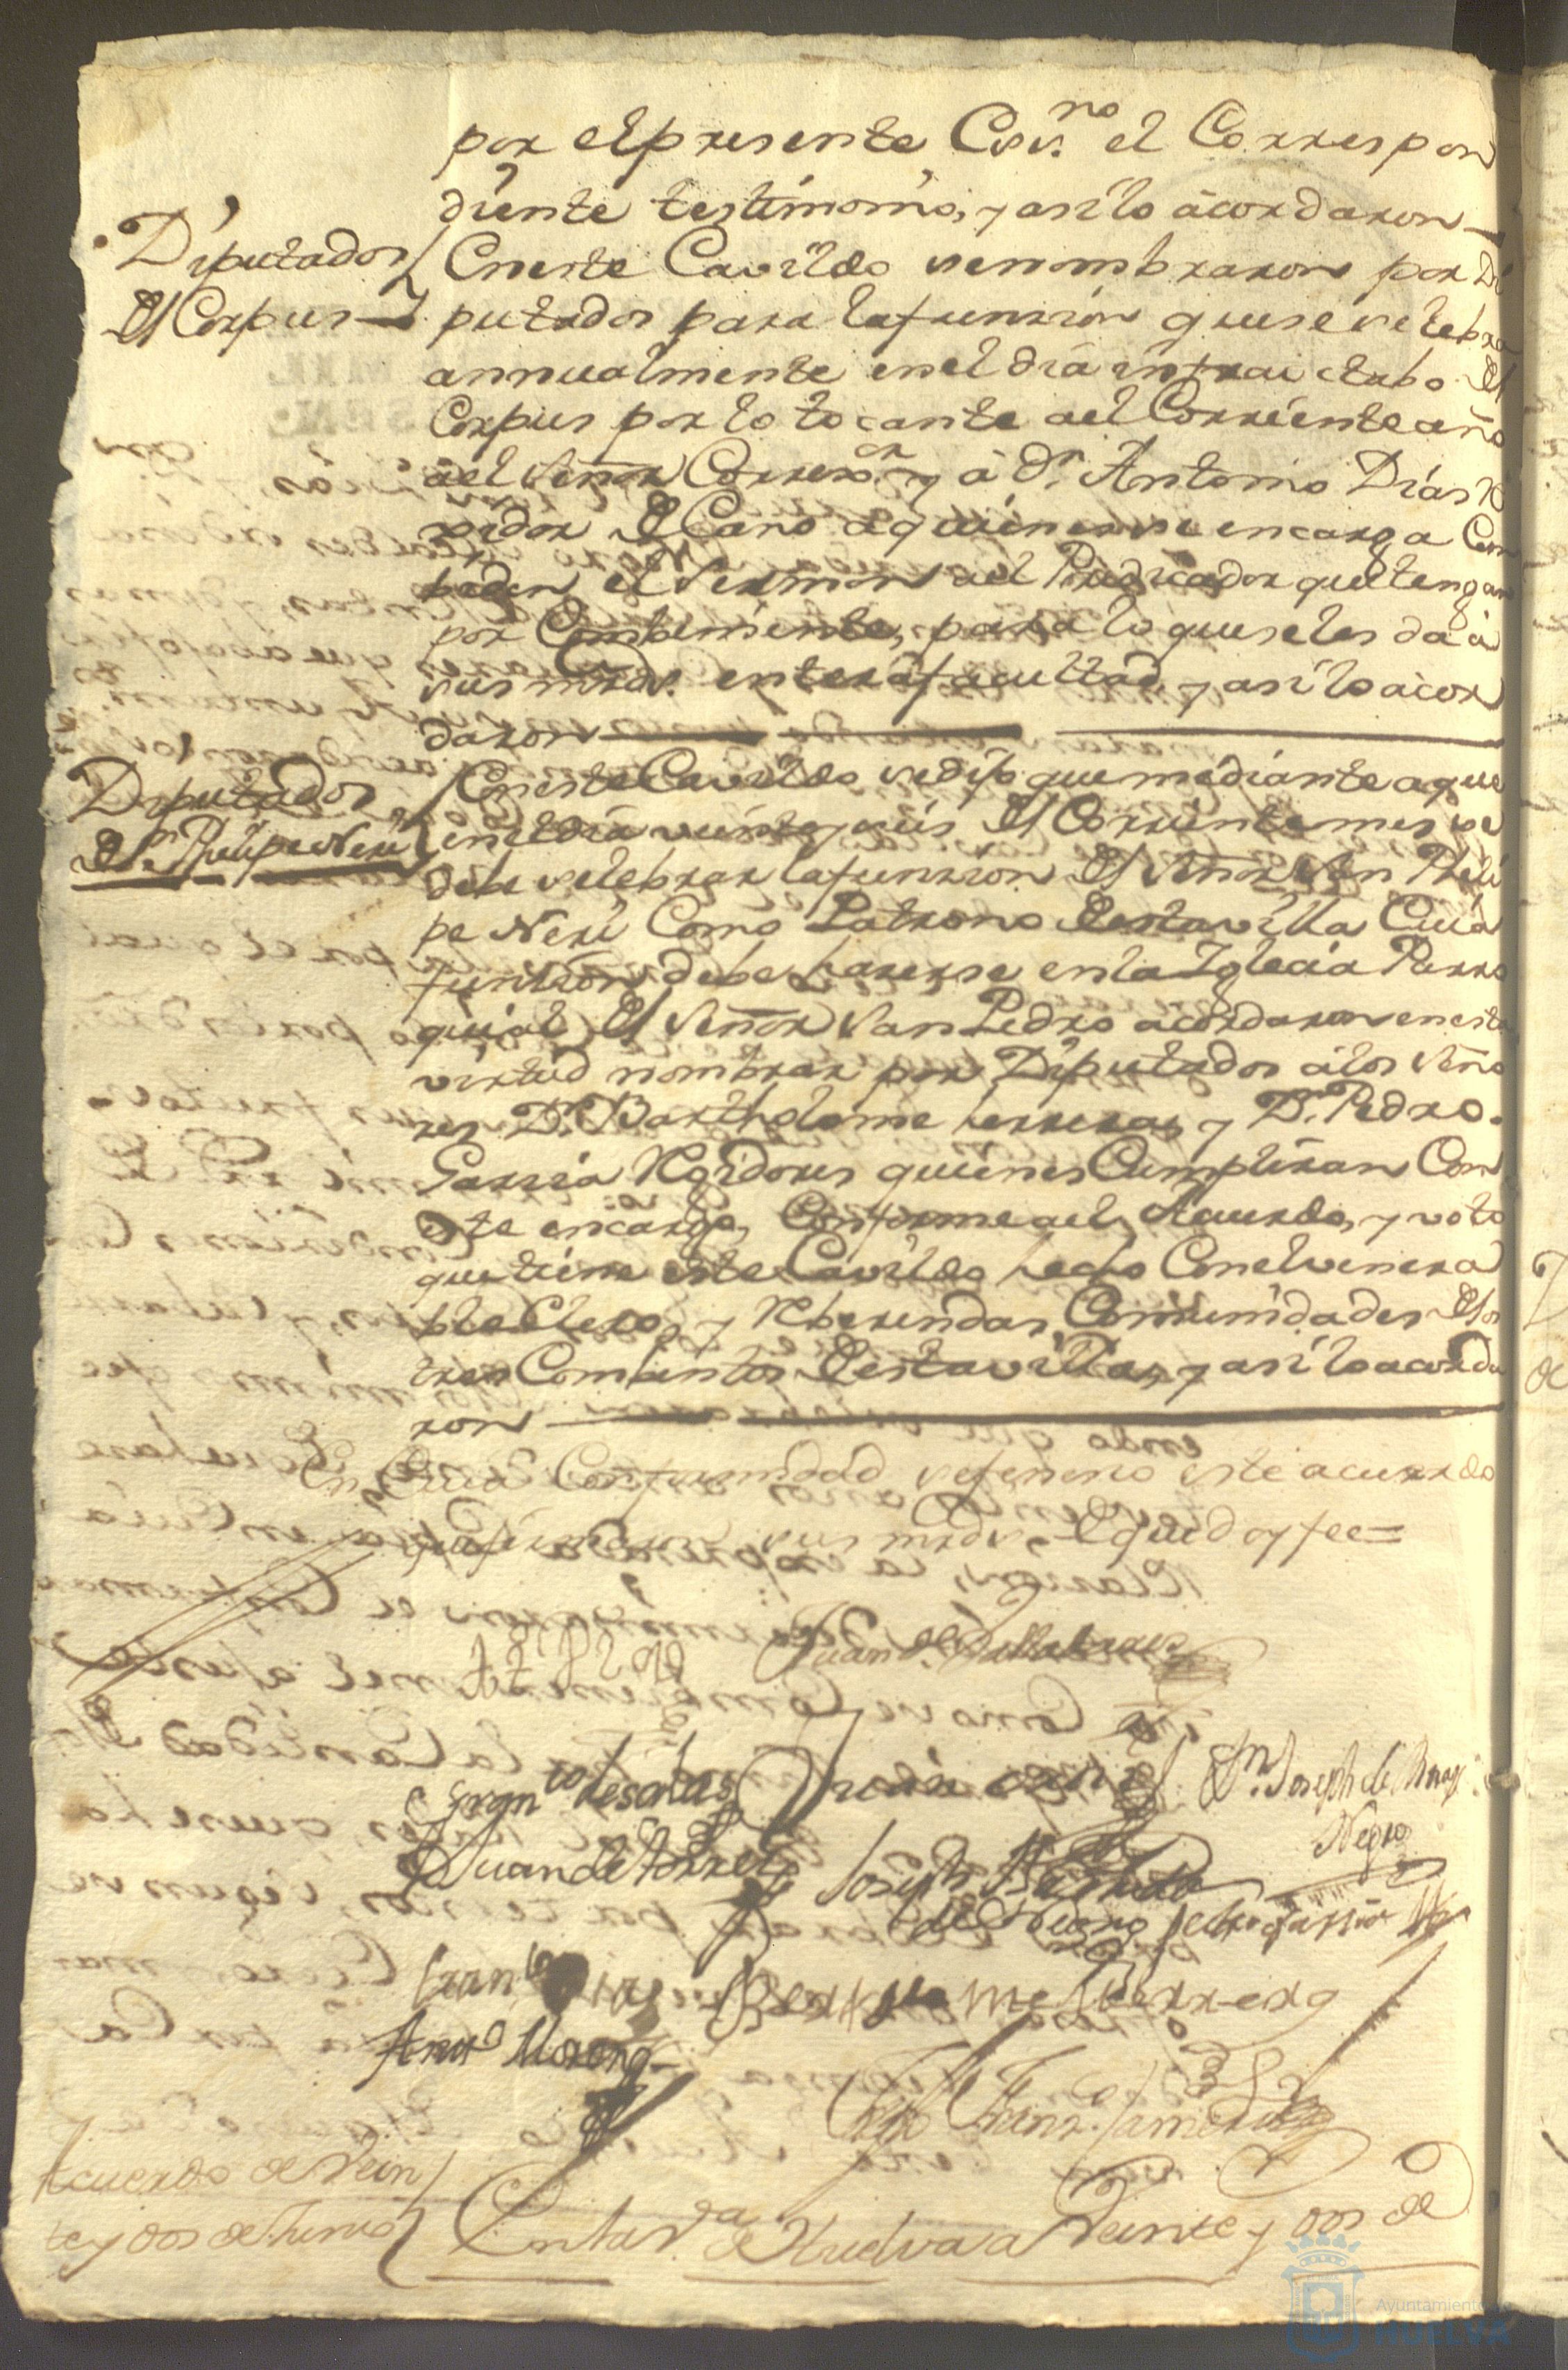 por el presente Essn.no el Correspon
diente testimonio, y asi lo acordaron
Diputados
Del Corpus
En este Cavildo se nombraron por Di
putados para la funsion que se selebra
annualmente en el dia infraoctabo Del
Corpus por lo tocante a el Corriente año
a el Señor Correxor y à Dn. Antonio Dias Re
xidor De Cano a quienes se encarga Com
biden el Sermon a el Predicador que tengan
por Combeniente, para lo que se les da à
sus mrds. entera facultad, y asi lo acor
daron
Diputados
De Sn. Phelipe Neri
En este Cavildo se dijo que mediante a que
en el dia veinte y seis Del Corriente mes se
debe selebrar la funsion Del Señor San Pheli
pe Neri Como Patrono De esta villa Cuia
funsion debe haserse en la Iglecia Parro
quial Del Señor San Pedro acordaron en esta
virtud nombrar por Diputados à los Seño
res Dn. Bartholome herrera, y Dn. Pedro
Garsia Regidores quienes Cumpliran Con
este encargo, Conforme a el Acuerdo, y voto
que tiene este Cavildo hecho Con el venera
ble Clero, y Reberendas Comunidades De los
tres Combentos De esta villa, y asi lo acorda
ron
En Cuia Conformidad se fenesio este acuerdo
que firmaron sus mrds. De que doy fee=
Juan de
Franco de salas
Dn. Joseph de
Negro
Juan de torres
Joseph
Pedro Garsia
Bartholome Herrera
Anto Moreno
Franco. Jimenez
Acuerdo de Vein
te y dos de Junio
En la va. de Huelva a Veinte y dos de
Ayuntamiento de
HUELVA